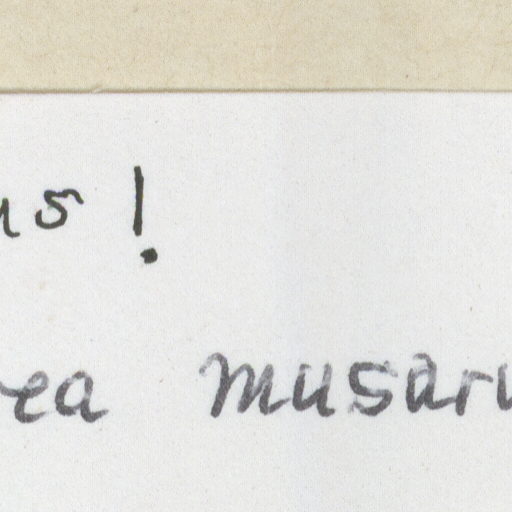 us!
rea musaru